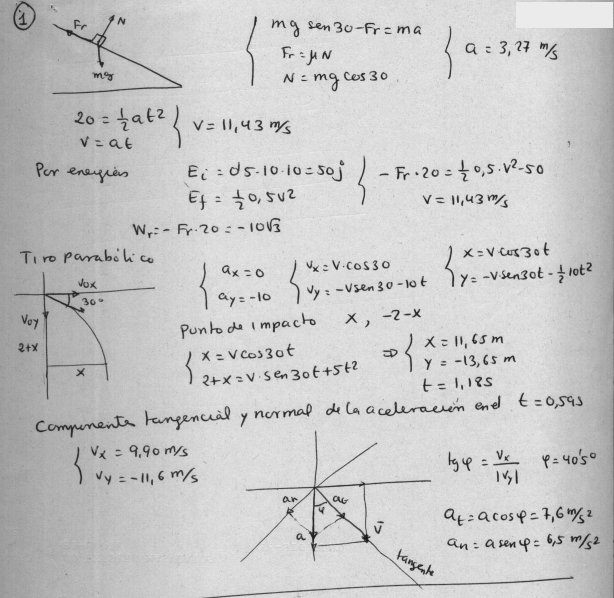 1
Fr N mg
mg sen30-Fr=ma
Fr=μN
N=mgcos30
a = 3,27 m/s
20=½at²
V=at
V=11,43 m/s
Por energías
Ei=0'5·10·10=50j
Ef=½0,5v²
-Fr·20=½0,5·V²-50
V=11,43 m/s
Wr=-Fr·20=-10√3
Tiro parabólico
Vox
30°
Voy
2+x
x
ax=0
ay=-10
Vx=V·cos30
Vy=-Vsen30-10t
x=V·cos30t
Y=-Vsen30t-½10t²
Punto de impacto x, -2-x
x=Vcos30t
2+x=V·sen30t+5t²
⇒
x=11,65 m
Y=-13,65 m
t=1,18s
Componentes tangencial y normal de la aceleración en el t=0,59s
Vx=9,90 m/s
Vy=-11,6 m/s
an φ at
a V̄
tangente
tgφ=Vx/|Vy| φ=40'5°
at=acosφ=7,6 m/s²
an=asenφ=6,5 m/s²